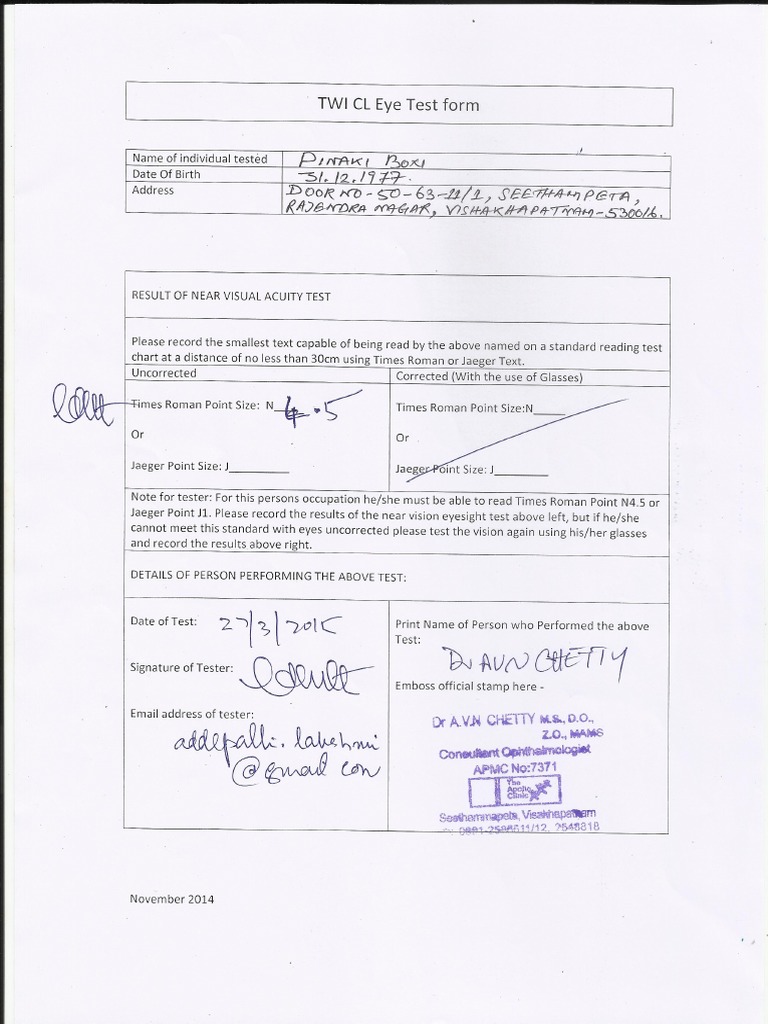 TWI CL Eye Test form
Name of individual tested PINAKI BOXI
Date Of Birth 31.12.1977.
Address DOOR NO-50-63-11/1, SEETHAMPETA,
RAJENDRA NAGAR, VISHAKHAPATNAM-530016.
RESULT OF NEAR VISUAL ACUITY TEST
Please record the smallest text capable of being read by the above named on a standard reading test
chart at a distance of no less than 30cm using Times Roman or Jaeger Text.
Uncorrected Corrected (With the use of Glasses)
Times Roman Point Size: N 4.5 Times Roman Point Size:N_____
Or Or
Jaeger Point Size: J_________ Jaeger Point Size: J________
Note for tester: For this persons occupation he/she must be able to read Times Roman Point N4.5 or
Jaeger Point J1. Please record the results of the near vision eyesight test above left, but if he/she
cannot meet this standard with eyes uncorrected please test the vision again using his/her glasses
and record the results above right.
DETAILS OF PERSON PERFORMING THE ABOVE TEST:
Date of Test: 27/3/2015 Print Name of Person who Performed the above
Test:
Dr AVN CHETTY
Signature of Tester:
Emboss official stamp here -
Email address of tester:
addepalli.lakshmi
@gmail com
Dr A.V.N CHETTY M.S., D.O.,
Z.O., MAMS
Consultant Ophthalmologist
APMC No:7371
The
Apollo
Clinic
Seethammapeta, Visakhapatnam
November 2014